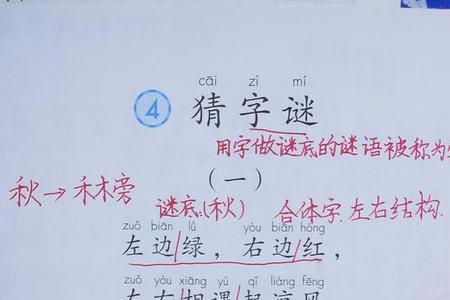 cāi zì mí
4 猜字谜
用字做谜底的谜语被称为
(一)
秋→禾木旁
谜底:(秋) 合体字.左右结构.
zuǒ biān lǜ yòu biān hóng
左边/绿,右边/红,
zuǒ yòu xiāng yù qǐ liáng fēng
左右/相遇/起凉风